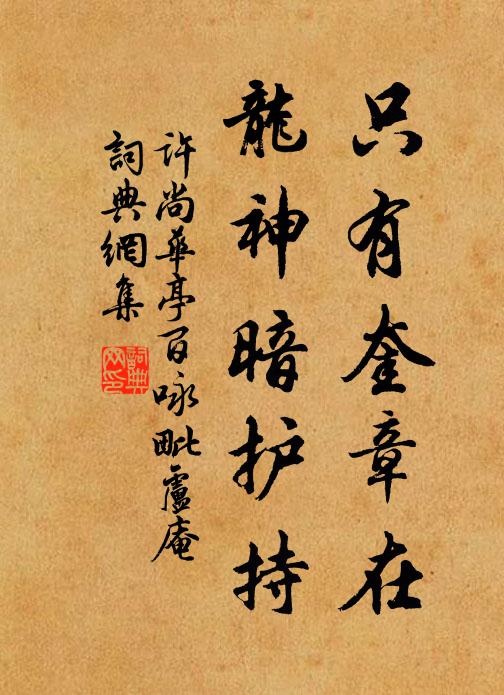 只有奎章在
龍神暗护持
許尚華亭百咏毗盧庵
詞典網集
詞典网印